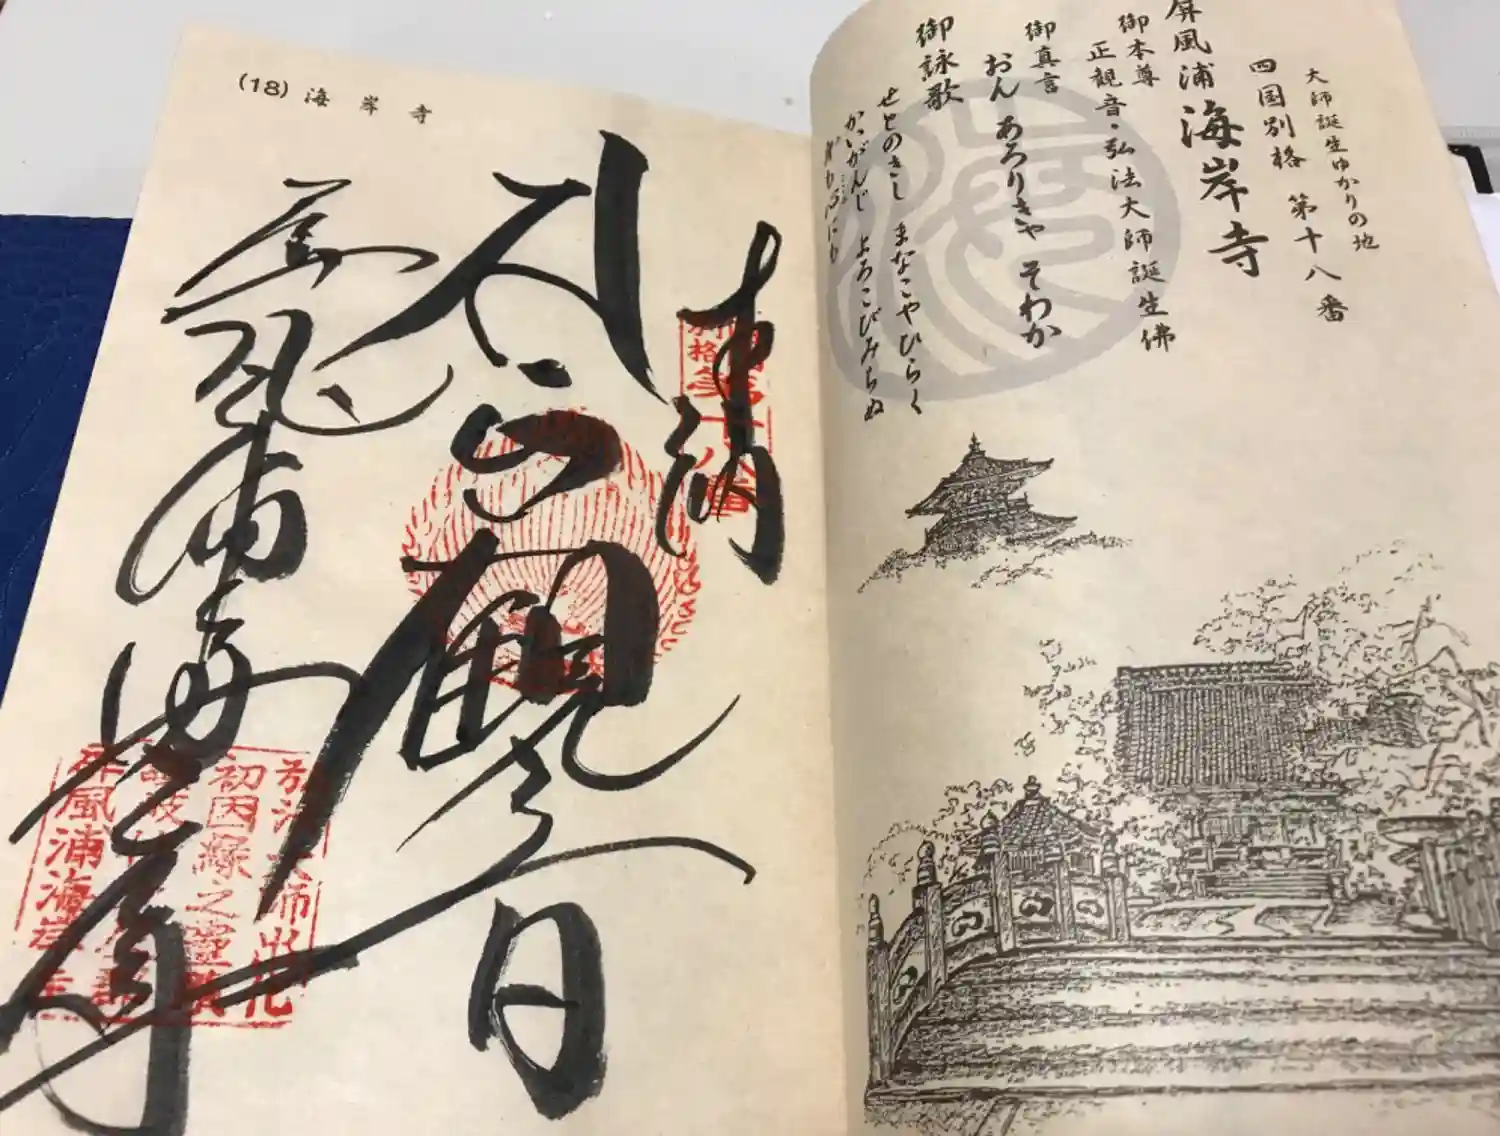 大師誕生ゆかりの地
四国別格 第十八番
屏風浦 海岸寺
御本尊
正観音・弘法大師誕生佛
御真言
おん あろりきゃ そわか
御詠歌
せとのきし まなこやひらく
かいがんじ よろこびみちぬ
(18) 海岸寺
奉納
正観音
屏風浦海岸寺
第十八番
初因縁之霊
屏風浦海岸